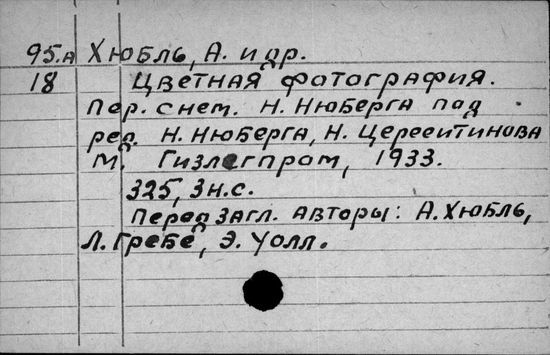 95.А Хюбль, А. и др.
18 Цветная фотография.
Пер. с нем. Н. Нюберга под
ред. Н. Нюберга, Н. Церевитинова
М. Гизлегпром, 1933.
325, 3 н.с.
Перед загл. авторы: А. Хюбль,
Л. Гребе, Э. Уолл.